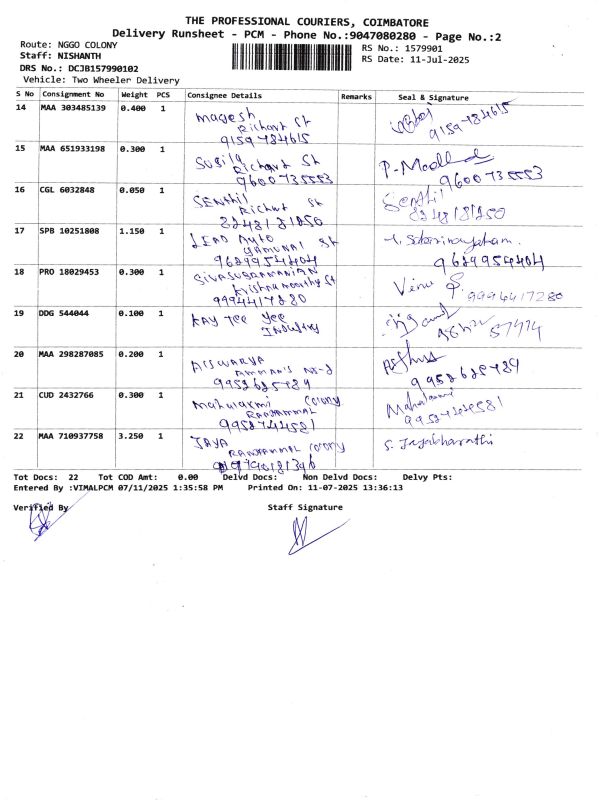 THE PROFESSIONAL COURIERS, COIMBATORE
Delivery Runsheet - PCM - Phone No.:9047080280 - Page No.:2
Route: NGGO COLONY
RS No.: 1579901
Staff: NISHANTH
RS Date: 11-Jul-2025
DRS No.: DCJB157990102
Vehicle: Two Wheeler Delivery
S No Consignment No Weight PCS Consignee Details Remarks Seal & Signature
14 MAA 303485139 0.400 1 Magesh
Richart St
9159784615 9159784615
15 MAA 651933198 0.300 1 Susila
Richart St
9600735553 9600735553
16 CGL 6032848 0.050 1 SENthil Senthil
Richart St
8248181250 8248181250
17 SPB 10251808 1.150 1 LEAD Auto
YAMUNAI St
9629954404 9629954404
18 PRO 18029453 0.300 1 SIVASUBRAMANIAN
Krishnamoorthy St
9994417280 9994417280
19 DDG 544044 0.100 1 KAY TEE YEE
INDUSTRY
20 MAA 298287085 0.200 1 AISWARYA
9952625789 9952625789
21 CUD 2432766 0.300 1 Mahalaxmi Colony
RANJAMMAL
22 MAA 710937758 3.250 1 JAYA S. Jayabharathi
RANJAMMAL Colony
Tot Docs: 22 Tot COD Amt: 0.00 Delvd Docs: Non Delvd Docs: Delvy Pts:
Entered By :VIMALPCM 07/11/2025 1:35:58 PM Printed On: 11-07-2025 13:36:13
Verified By Staff Signature